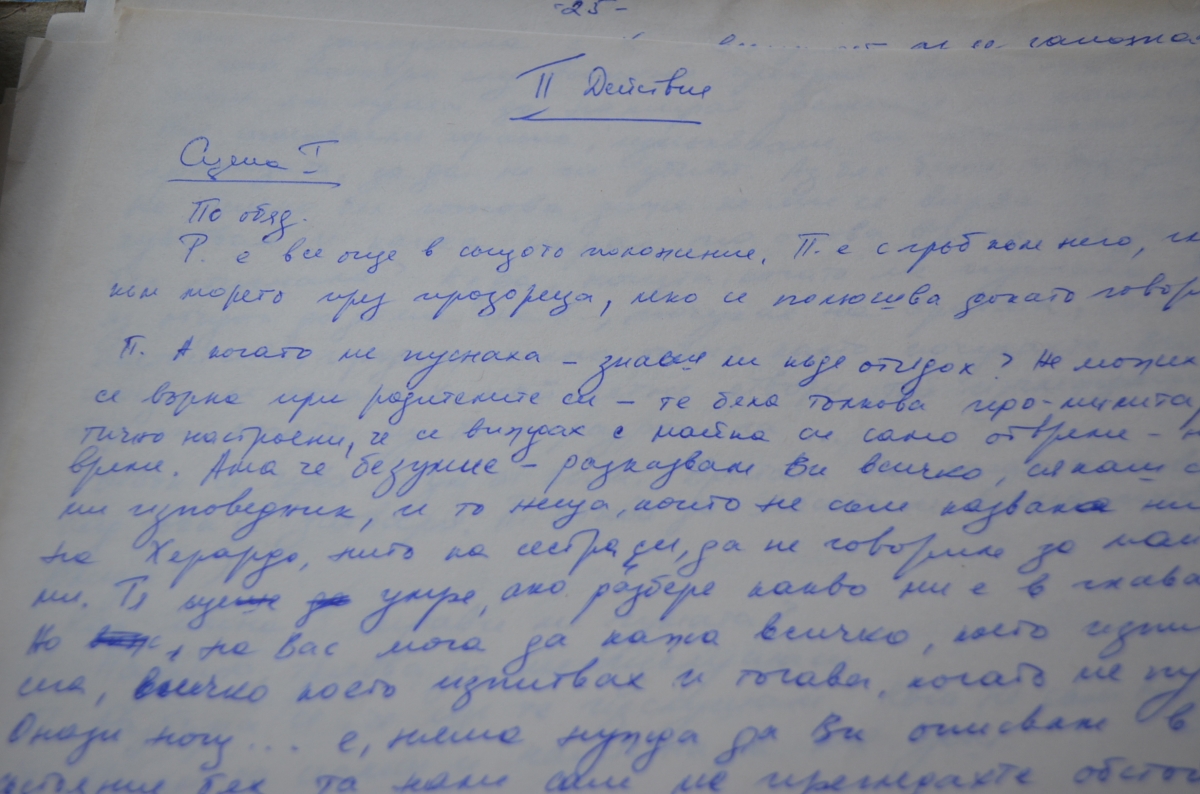 -25-
II Действие
Сцена I
По обяд.
Р. е все още в същото положение. П. е с гръб към него,
към морето през прозореца, леко се полюшва докато говор
П. А когато ме пуснаха – знаете ли къде отидох? Не можех
се върна при родителите си – те бяха толкова про-милита
тично настроени, че се виждах с майка си само отвреме –
време. Ама че безумие – разказвам Ви всичко, сякаш с
ми изповедник, и то неща, които не съм казвала ни
на Херардо, нито на сестра си, да не говорим за май
ми. Тя ще умре, ако разбере какво ми е в глава
Но , на Вас мога да кажа всичко, което изпит
сла, всичко което изпитвах и тогава, когато ме пу
Онази нощ... е, няма нужда да Ви описвам в
бях та нали сам ме прегледахте обстой